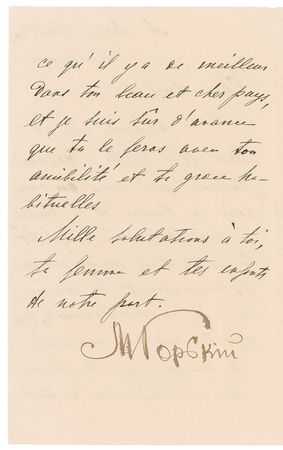 ce qu'il y a de meilleur
dans ton beau et cher pays,
et je suis sûr d'avance
que tu le feras avec ton
amibilité et ta grace ha-
bituelles
Mille salutations à toi,
ta femme et tes enfants
de notre part.
МГорькій